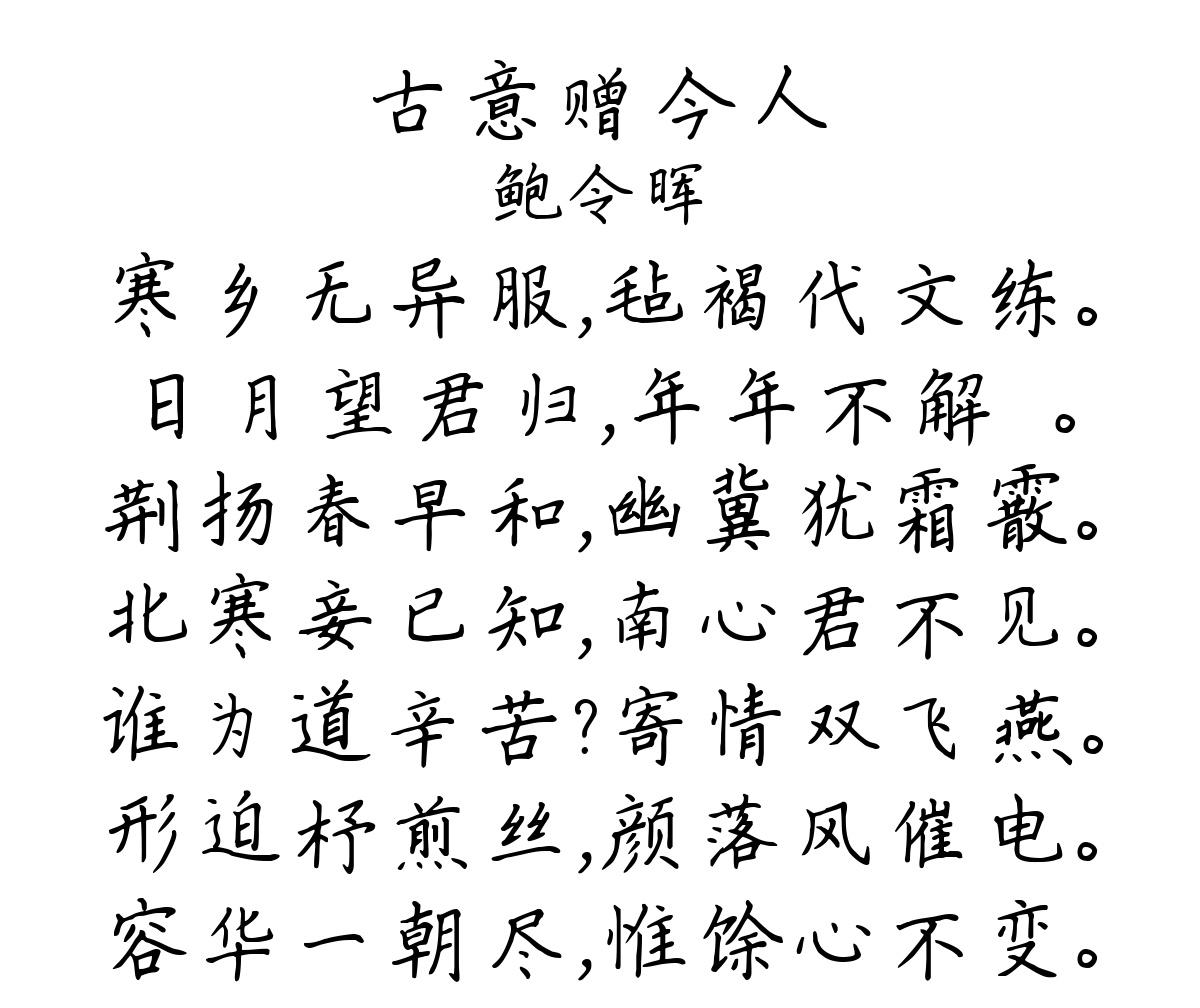 古意赠今人
鲍令晖
寒乡无异服,毡褐代文练。
日月望君归,年年不解 。
荆扬春早和,幽冀犹霜霰。
北寒妾已知,南心君不见。
谁为道辛苦?寄情双飞燕。
形迫杼煎丝,颜落风催电。
容华一朝尽,惟馀心不变。